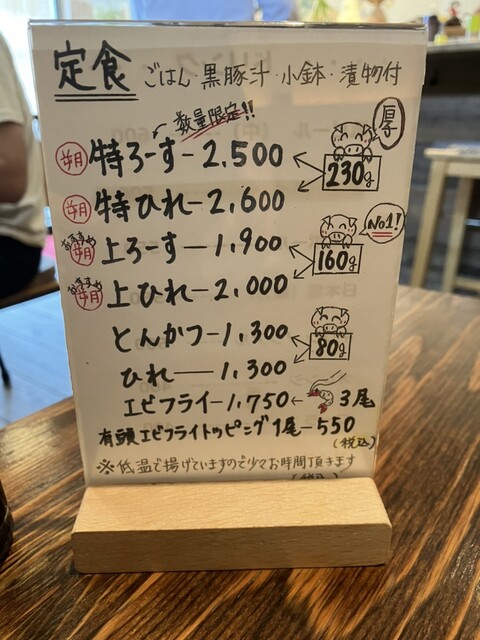 定食 ごはん 黒豚汁・小鉢・漬物付
数量限定!!
特ろーすー2,500
厚
230g
特ひれー2,600
おすすめ
上ろーすー1,900
No1!
160g
おすすめ
上ひれー2,000
とんかつー1,300
80g
ひれー1,300
エビフライー1,750←3尾
有頭エビフライトッピング1尾ー550
(税込)
※低温で揚げていますので少々お時間頂きます
(税込)